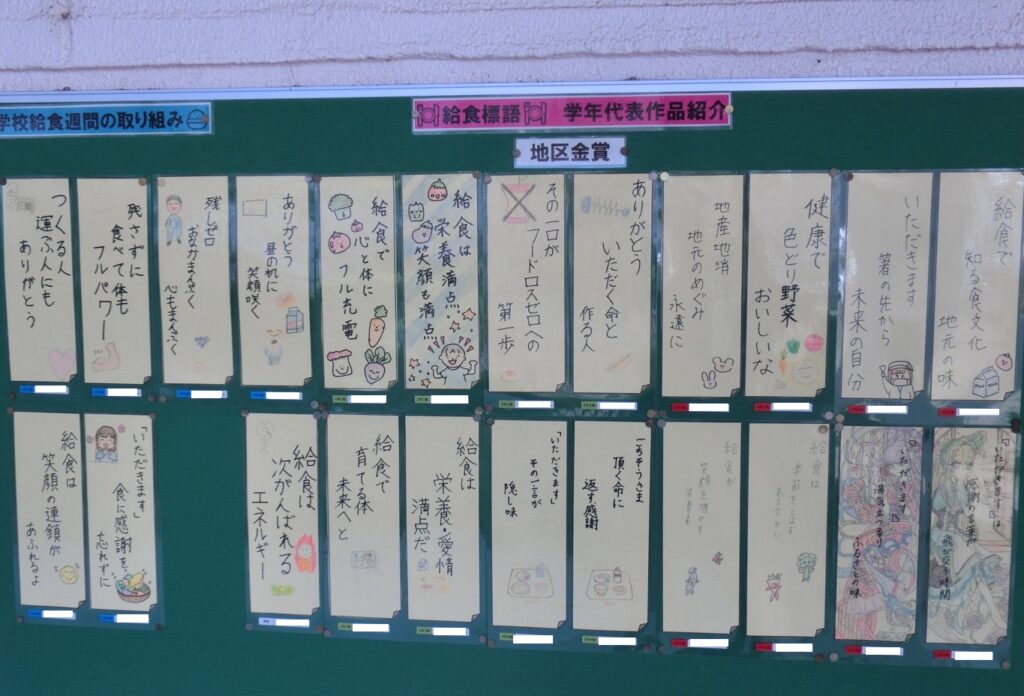 学校給食週間の取り組み
給食標語 学年代表作品紹介
地区金賞
給食で
知る食文化
地元の味
いただきます
箸の先から
未来の自分
健康で
色どり野菜
おいしいな
地産地消
地元のめぐみ
永遠に
ありがとう
いただく命と
作る人
その一口が
フードロスゼロへの
第一歩
給食は
栄養満点
笑顔も満点
給食で
心と体に
フル充電
ありがとう
昼の机に
笑顔咲く
残しゼロ
おなかまんぷく
心もまんぷく
残さずに
食べて体も
フルパワー
つくる人
運ぶ人にも
ありがとう
「いただきます」は
感謝の言葉が
飛び交う時間
「いただきます」
湯気立つ香り
ふるさとの味
給食は
給食が
笑顔を増やす
栄養素
ごちそうさま
頂く命に
返す感謝
「いただきます」
その一言が
隠し味
給食は
栄養・愛情
満点だ
給食で
育てる体
未来へと
給食は
次がんばれる
エネルギー
「いただきます」
食に感謝を
忘れずに
給食は
笑顔の連鎖が
あふれるよ